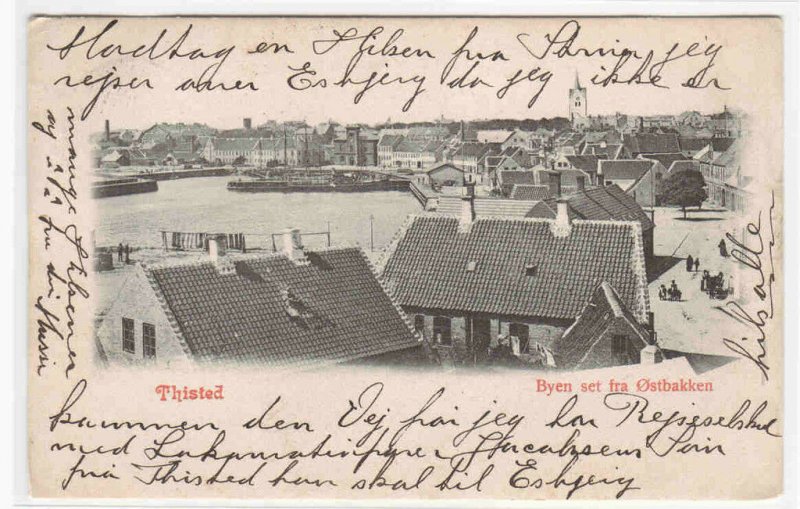 Modtag en Hilsen fra Stinna jeg
rejser over Esbjerg da jeg ikke er
Thisted
Byen set fra Østbakken
kommen den Vej før jeg har Rejseselskab
med Lokomotivfører Jacobsens Søn
fra Thisted han skal til Esbjerg
hils alle
mange Hilsener
fra din Hussi